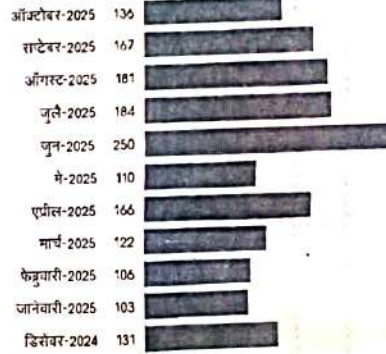 ऑक्टोबर-2025 136
सप्टेंबर-2025 167
ऑगस्ट-2025 181
जुलै-2025 184
जुन-2025 250
मे-2025 110
एप्रील-2025 166
मार्च-2025 122
फेब्रुवारी-2025 106
जानेवारी-2025 103
डिसेंबर-2024 131